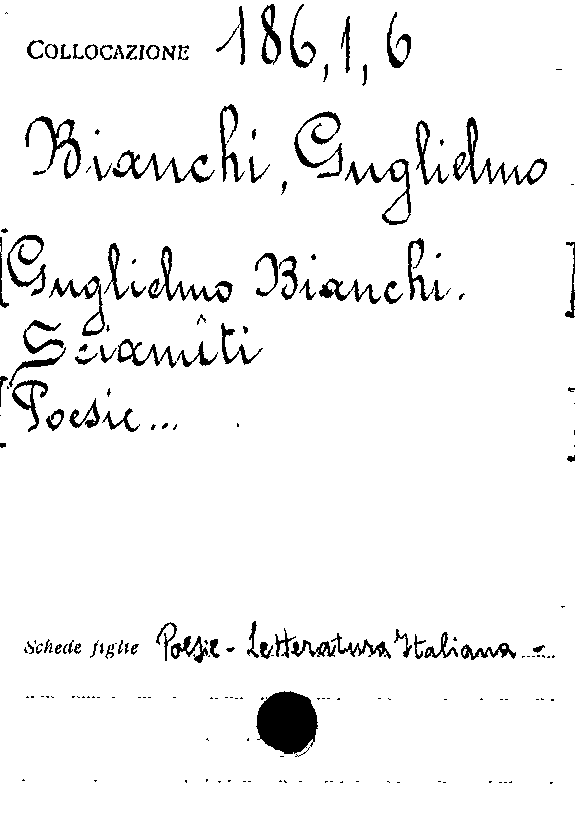 COLLOCAZIONE 186,1,6
Bianchi, Guglielmo
[Guglielmo Bianchi.]
Sciamîti
[Poesie...]
Schede figlie Poesie - Letteratura Italiana -